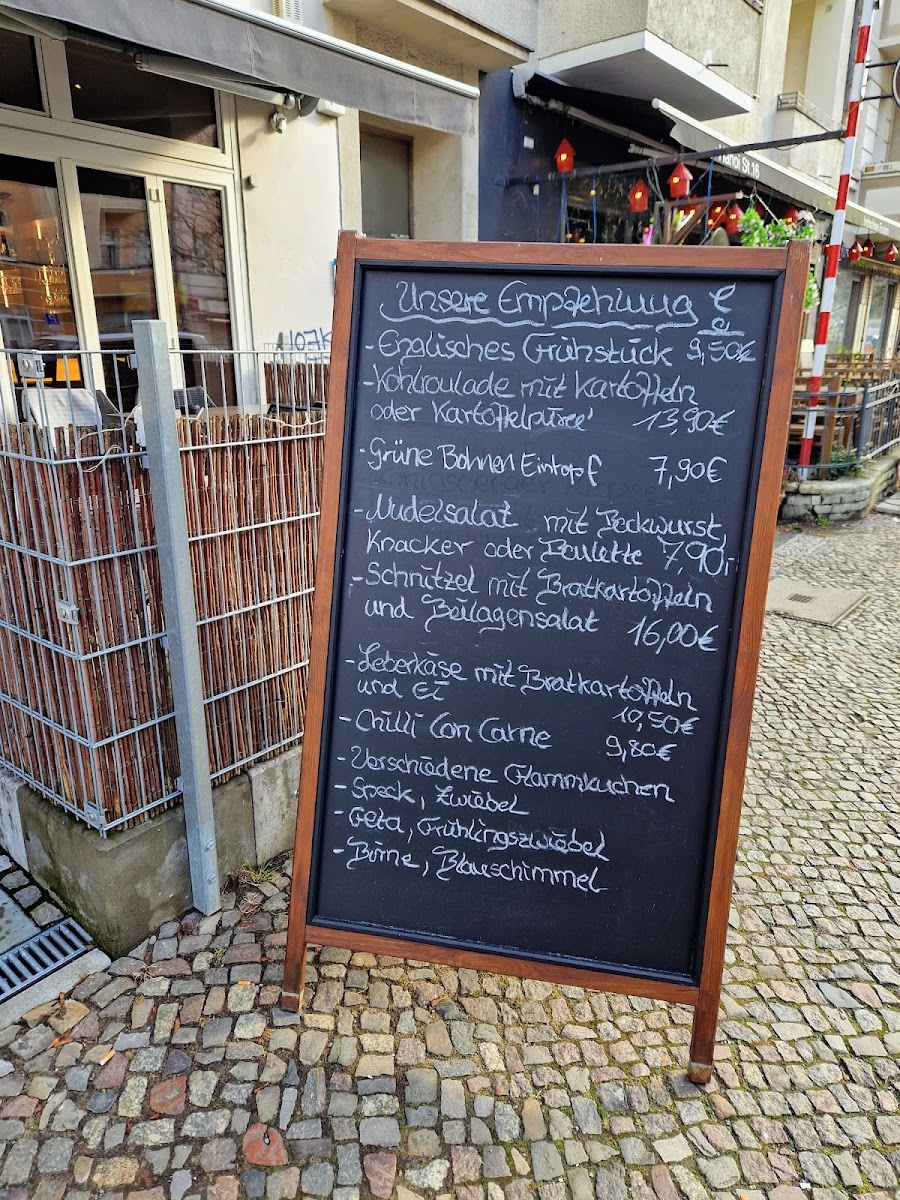 Hanoi St.16
Unsere Empfehlung €
Englisches Frühstück 9,50€
- Kohlroulade mit Kartoffeln
oder Kartoffelpüree 13,90€
- Grüne Bohnen Eintopf 7,90€
- Nudelsalat mit Bockwurst,
Knacker oder Boulette 7,90,-
- Schnitzel mit Bratkartoffeln
und Beilagensalat 16,00€
- Leberkäse mit Bratkartoffeln
und Ei 10,50€
- Chilli Con Carne 9,80€
- Verschiedene Flammkuchen
- Speck, Zwiebel
- Feta, Frühlingszwiebel
- Birne, Blauschimmel